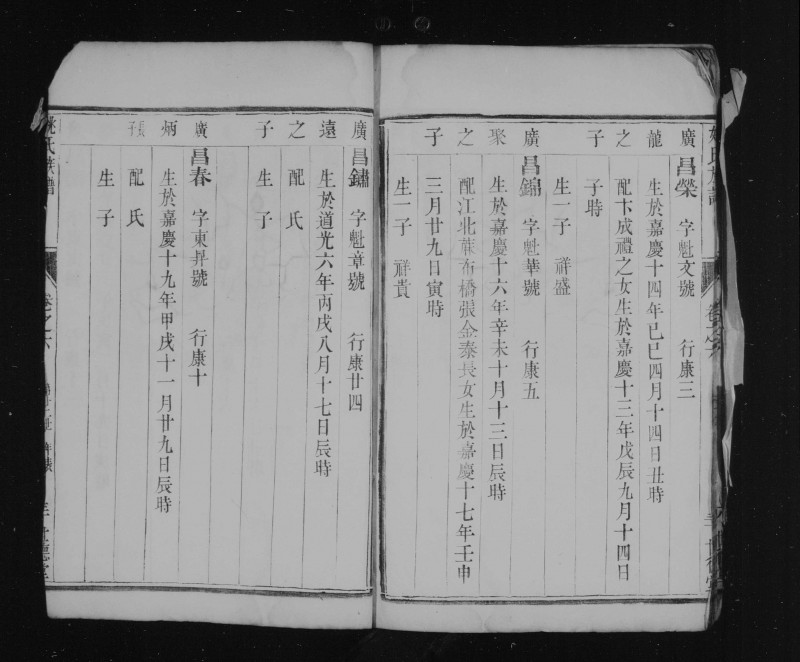 廣昌榮 字魁文號 行康三
龍 生於嘉慶十四年己巳四月十四日丑時
之 配卞成禮之女生於嘉慶十三年戊辰九月十四日
子 子時
生一子 祥盛
廣昌錦 字魁華號 行康五
聚 生於嘉慶十六年辛未十月十三日辰時
之 配江北葉布橋張金泰長女生於嘉慶十七年壬申
子 三月廿九日寅時
生一子 祥貴
廣昌鏽 字魁章號 行康廿四
遠 生於道光六年丙戌八月十七日辰時
之 配氏
子 生子
廣昌春 字東昇號 行康十
炳 生於嘉慶十九年甲戌十一月廿九日辰時
配氏
子 生子
姚氏族譜 卷之六 世德堂